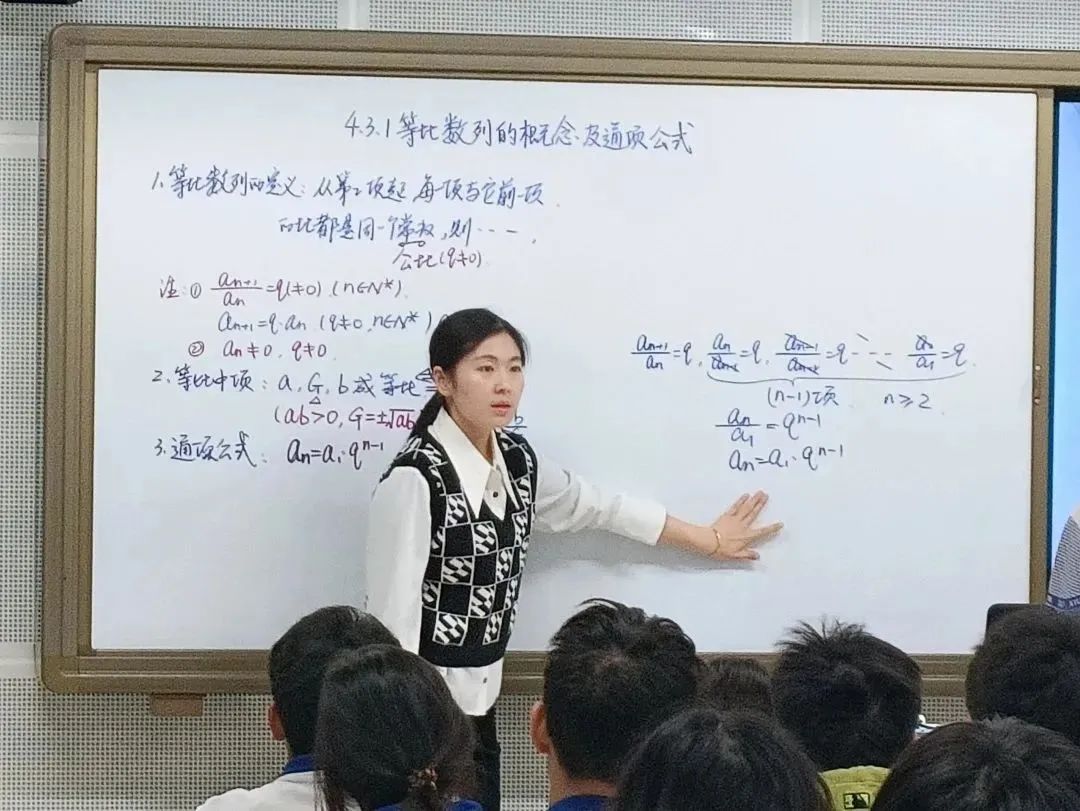 4.3.1等比数列的概念及通项公式
1.等比数列的定义：从第2项起,每一项与它前一项
的比都是同一个常数,则…….
公比(q≠0)
注:① aₙ₊₁/aₙ=q(≠0).(n∈N*).
aₙ₊₁=q·aₙ (q≠0,n∈N*)
② aₙ≠0, q≠0.
2.等比中项：a, G, b成等比
(ab>0, G=±√ab
3.通项公式：aₙ=a₁·qⁿ⁻¹
aₙ₊₁/aₙ=q, aₙ/aₙ₋₁=q, aₙ₋₁/aₙ₋₂=q ⋯ a₂/a₁=q.
(n-1)项 n≥2
aₙ/a₁=qⁿ⁻¹
aₙ=a₁·qⁿ⁻¹